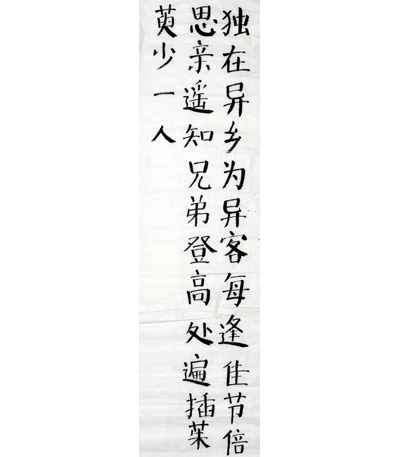 独在异乡为异客每逢佳节倍
思亲遥知兄弟登高处遍插茱
萸少一人